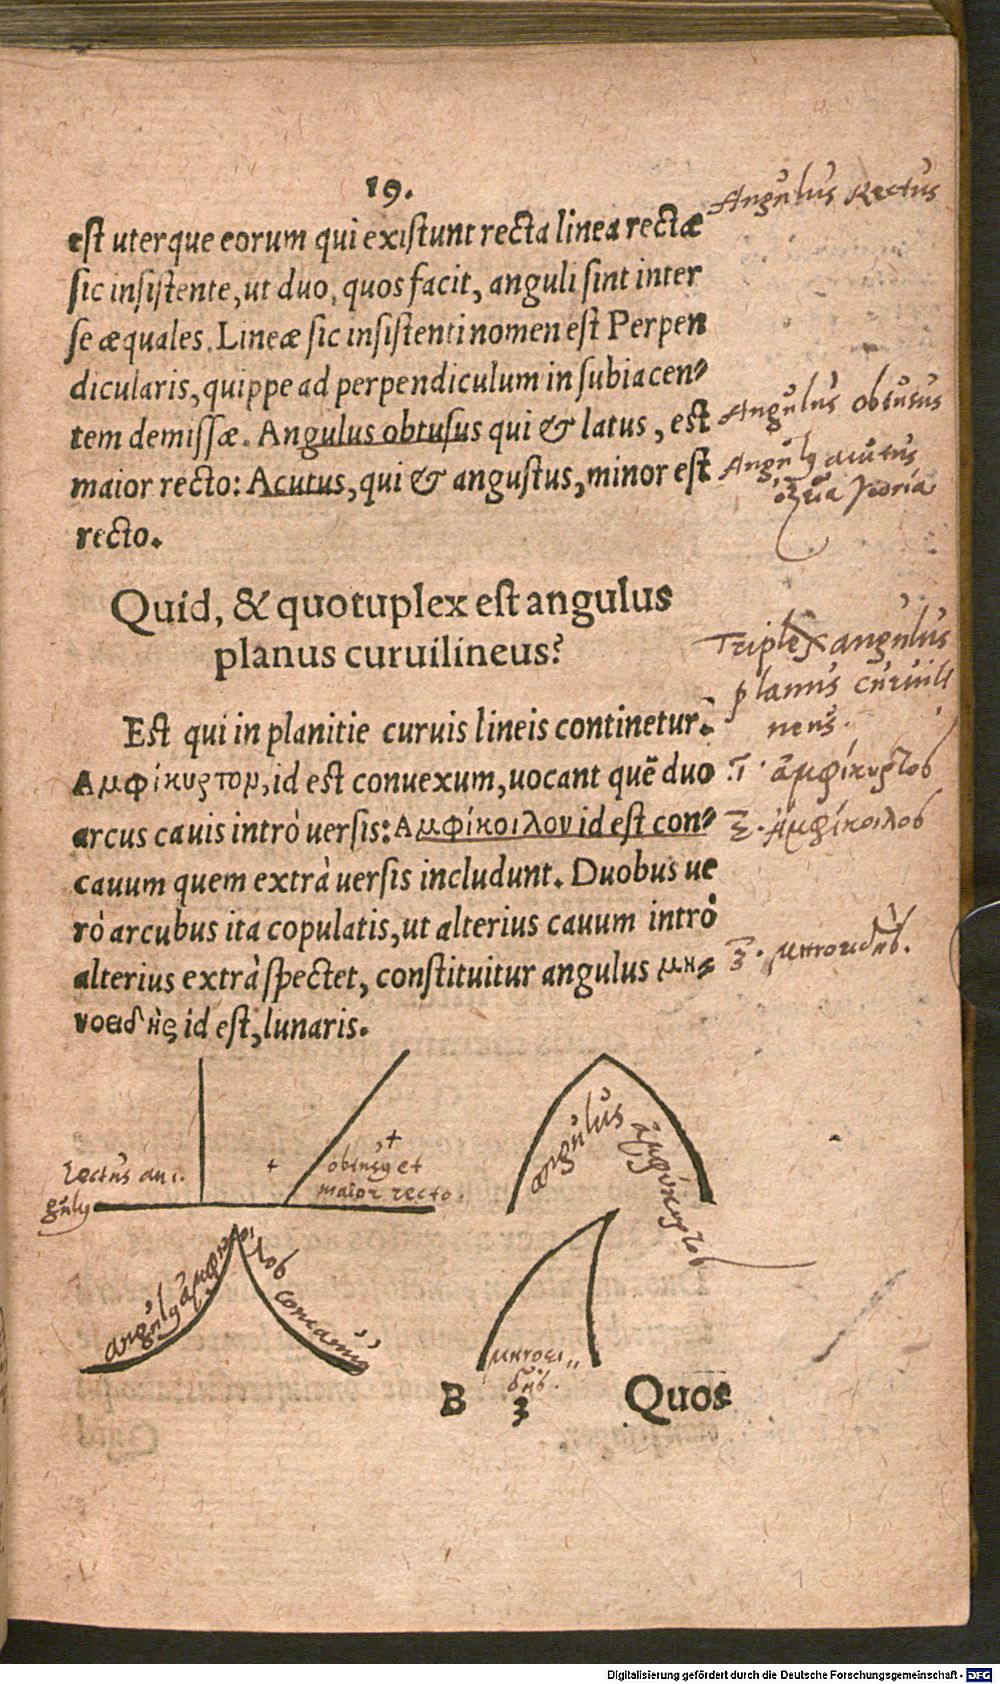 19.
est uterque eorum qui existunt recta linea rectæ
sic insistente, ut duo, quos facit, anguli sint inter
se æquales. Lineæ sic insistenti nomen est Perpen
dicularis, quippe ad perpendiculum in subiacen-
tem demissæ. Angulus obtusus qui & latus, est
maior recto: Acutus, qui & angustus, minor est
recto.
Angulus Rectus
Angulus obtusus
Angulus acutus
ὀξεῖα γωνία
Quid, & quotuplex est angulus
planus curuilineus?
Est qui in planitie curuis lineis continetur.
Αμφίκυρτον, id est conuexum, uocant quē duo
arcus cauis intrò uersis: Αμφίκοιλον id est con-
cauum quem extrà uersis includunt. Duobus ue
rò arcubus ita copulatis, ut alterius cauum intrò
alterius extrà spectet, constituitur angulus μη-
νοειδὴς id est, lunaris.
Triplex angulus
planus curuili
neus.
1. ἀμφίκυρτος
2. ἀμφίκοιλος
3. μηνοειδής.
Rectus an-
gulus
obtusus et
maior recto.
angulus ἀμφίκυρτος
angulus ἀμφίκοιλος concauus
μηνοει-
δής.
B 3 Quos
Digitalisierung gefördert durch die Deutsche Forschungsgemeinschaft - DFG